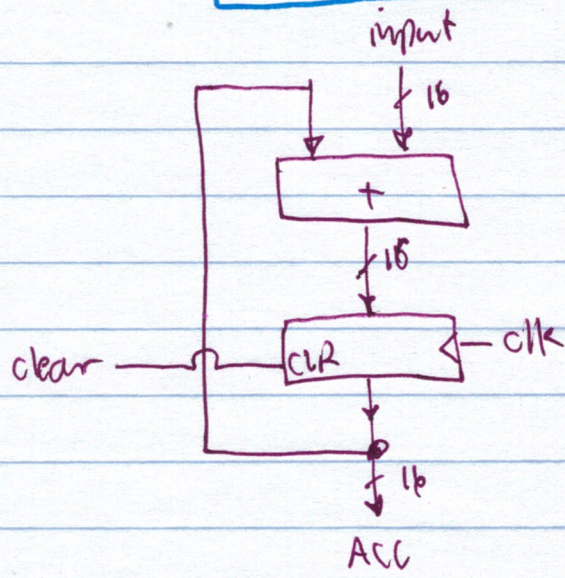 input
16
+
16
clear
CLR
clk
16
ACC